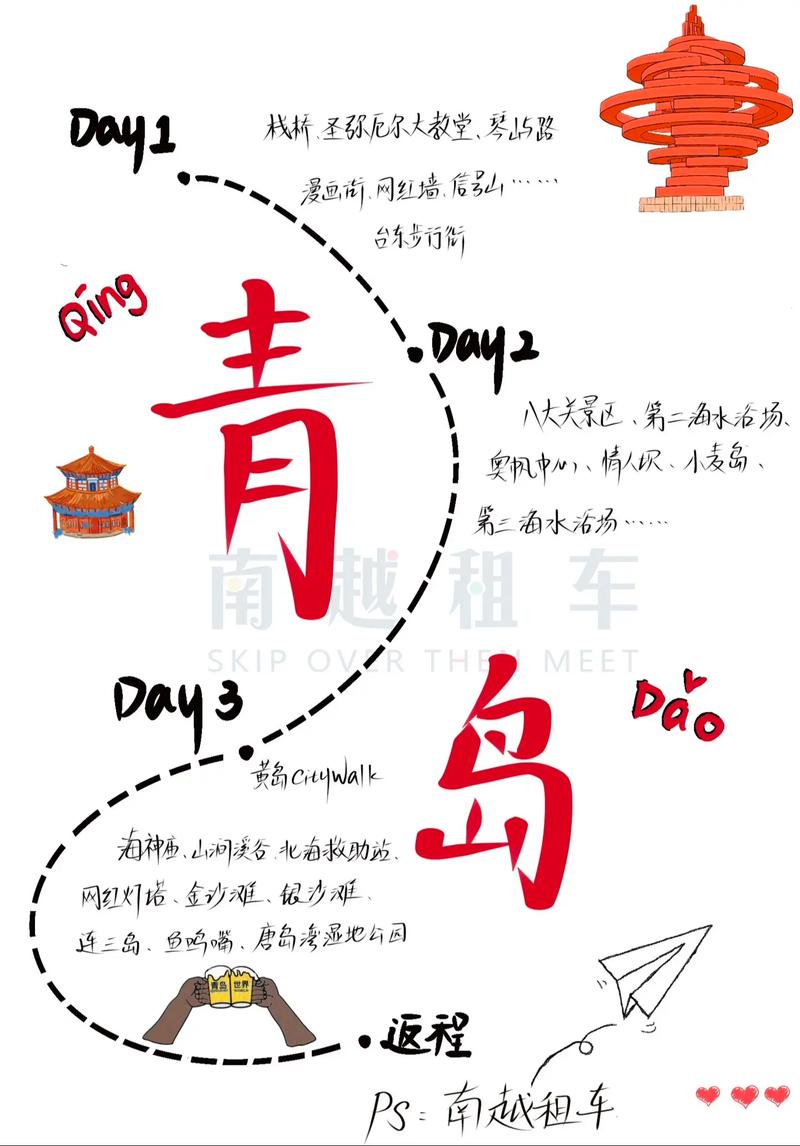 Day1
栈桥、圣弥厄尔大教堂、琴屿路
漫画街、网红墙、信号山……
台东步行街
Qīng
青
Day2
八大关景区、第二海水浴场、
奥帆中心、情人坝、小麦岛、
第三海水浴场……
南越租车
SKIP OVER THEN MEET
Day3
岛
Dǎo
黄岛CityWalk
海神庙、山涧溪谷、北海救助站、
网红灯塔、金沙滩、银沙滩、
连三岛、鱼鸣嘴、唐岛湾湿地公园
青岛 世界
返程
Ps：南越租车